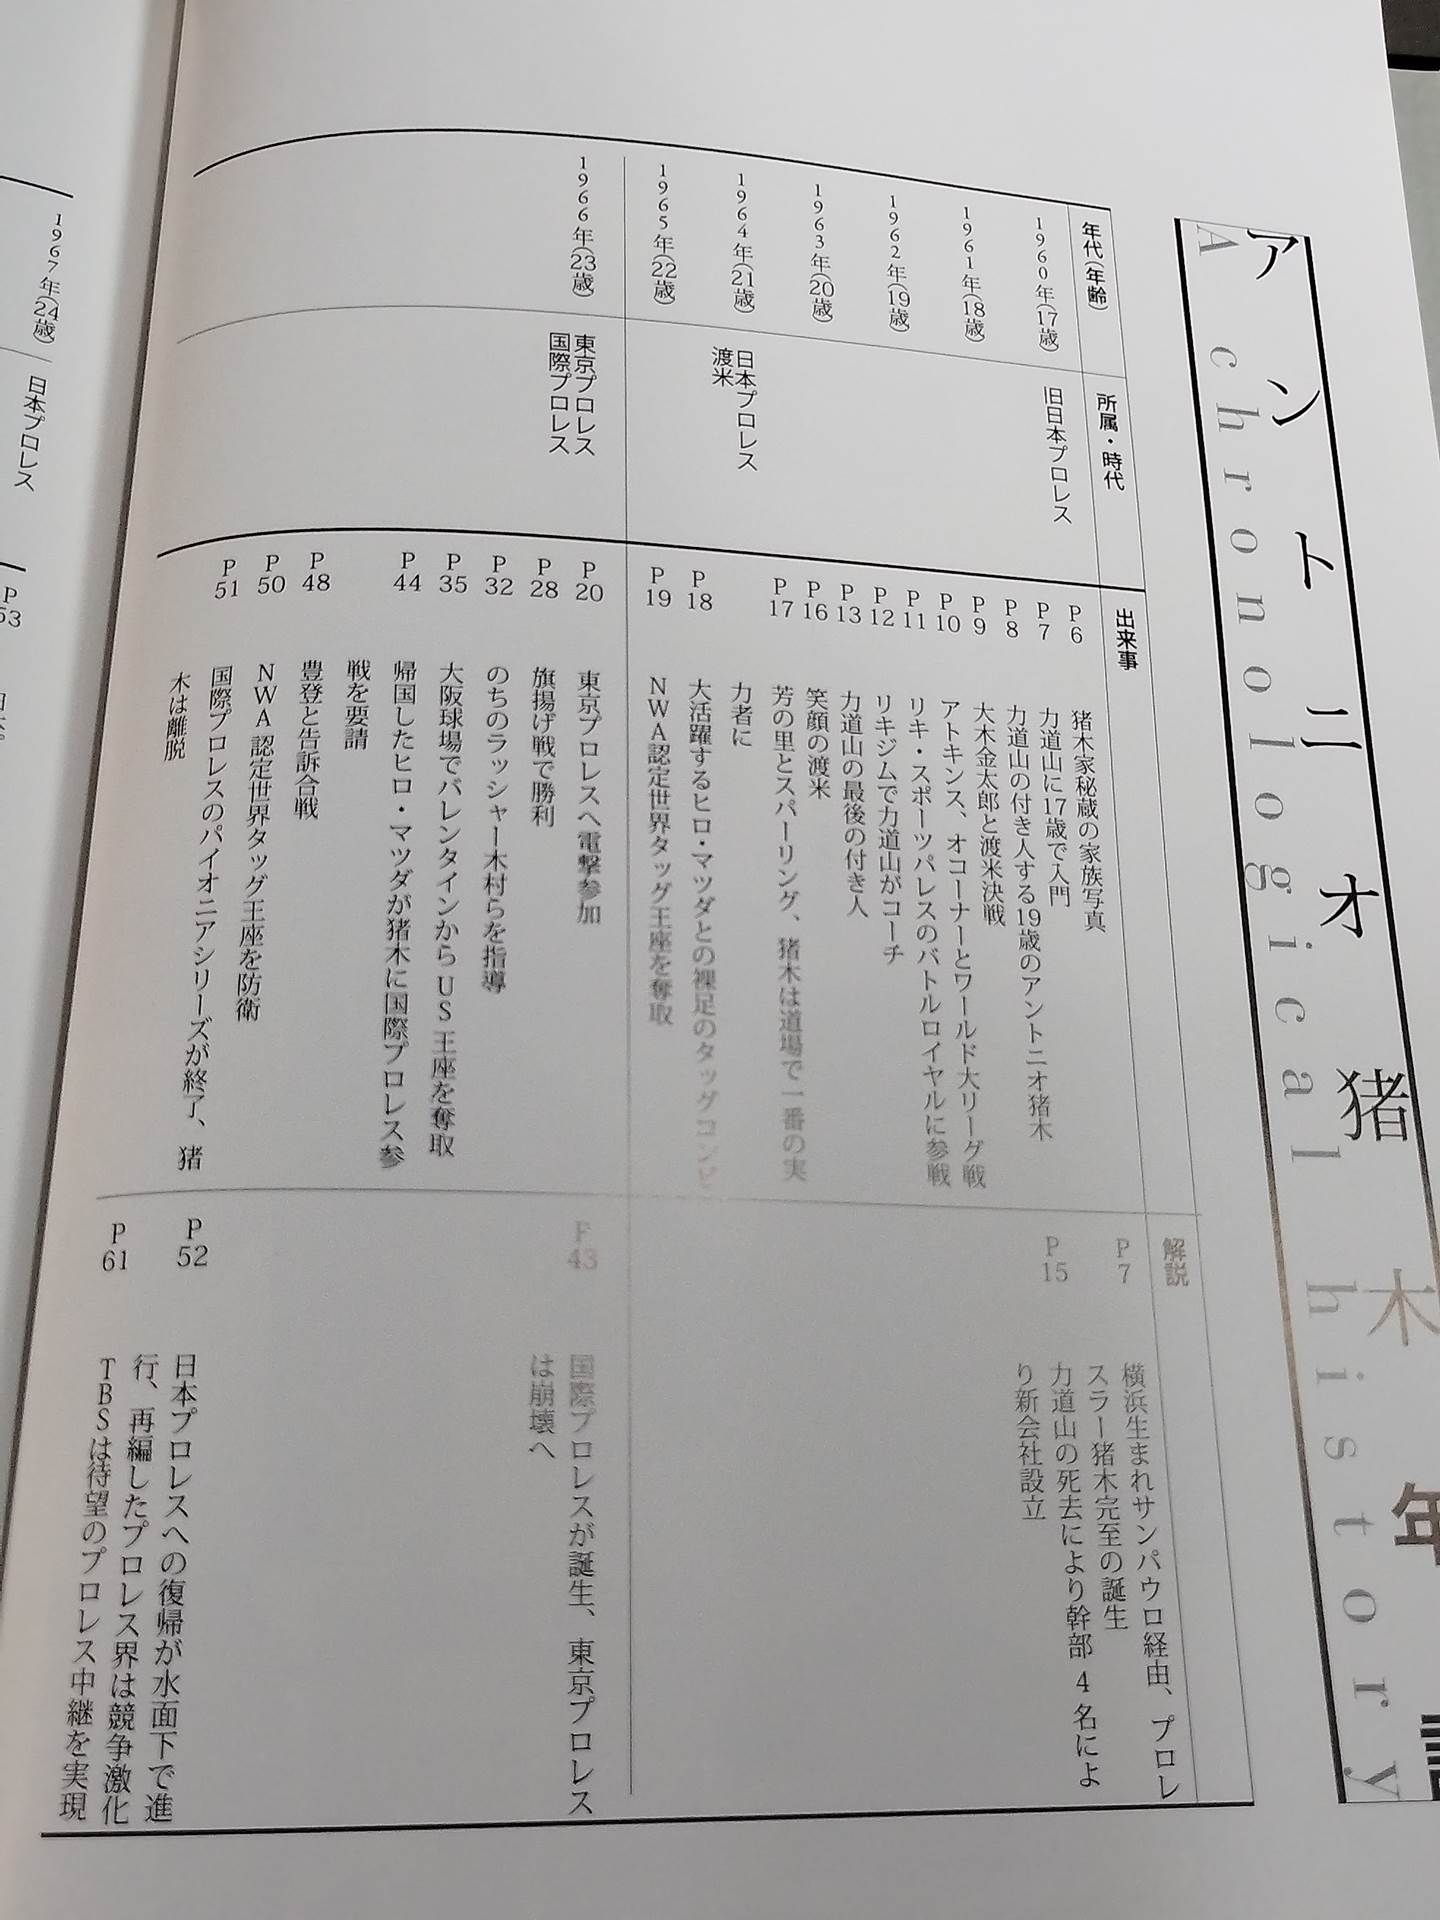 アントニオ猪木年
A chronological history
年代(年齢)
1960年(17歳)
1961年(18歳)
1962年(19歳)
1963年(20歳)
1964年(21歳)
1965年(22歳)
1966年(23歳)
所属・時代
旧日本プロレス
日本プロレス
渡米
東京プロレス
国際プロレス
出来事
P6 猪木家秘蔵の家族写真
P7 力道山に17歳で入門
P8 力道山の付き人する19歳のアントニオ猪木
P9 大木金太郎と渡米決戦
P10 アトキンス、オコーナーとワールド大リーグ戦
P11 リキ・スポーツパレスのバトルロイヤルに参戦
P12 リキジムで力道山がコーチ
P13 力道山の最後の付き人
P16 笑顔の渡米
P17 芳の里とスパーリング、猪木は道場で一番の実
力者に
P18 大活躍するヒロ・マツダとの裸足のタッグコンビ
P19 NWA認定世界タッグ王座を奪取
P20 東京プロレスへ電撃参加
P28 旗揚げ戦で勝利
P32 のちのラッシャー木村らを指導
P35 大阪球場でバレンタインからUS王座を奪取
P44 帰国したヒロ・マツダが猪木に国際プロレス参
戦を要請
P48 豊登と告訴合戦
P50 NWA認定世界タッグ王座を防衛
P51 国際プロレスのパイオニアシリーズが終了、猪
木は離脱
解説
P7 横浜生まれサンパウロ経由、プロレ
スラー猪木完至の誕生
P15 力道山の死去により幹部4名によ
り新会社設立
P43 国際プロレスが誕生、東京プロレス
は崩壊へ
P52 日本プロレスへの復帰が水面下で進
行、再編したプロレス界は競争激化
P61 TBSは待望のプロレス中継を実現
1967年(24歳)
日本プロレス
P53